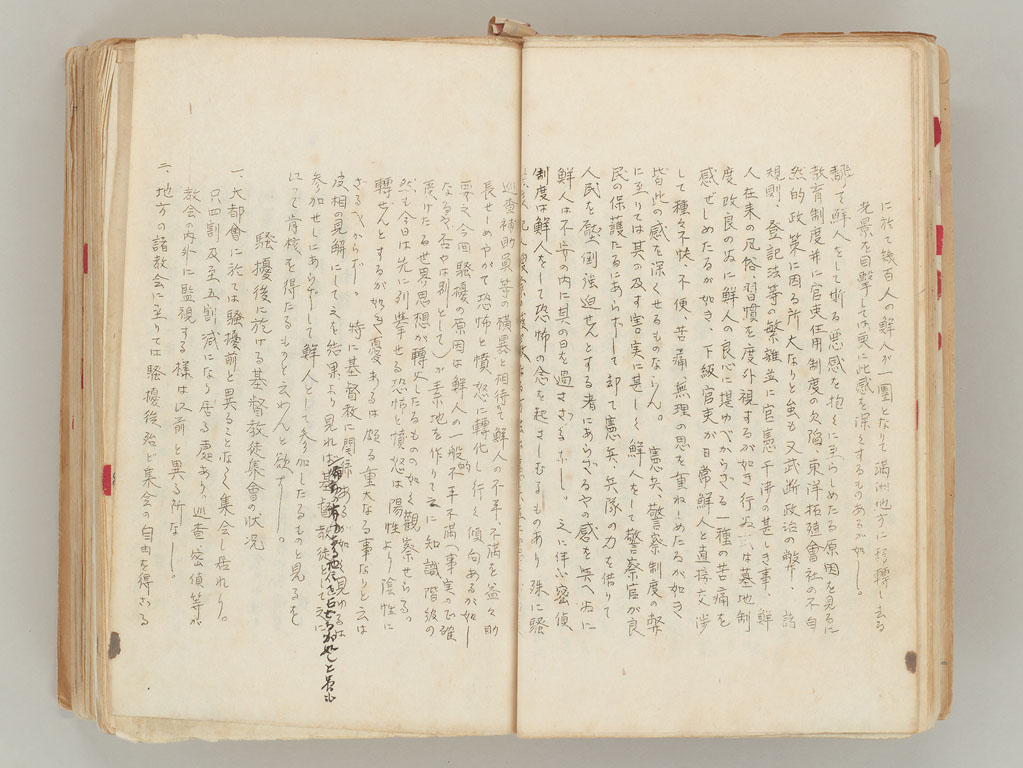 に於て幾百人の鮮人が一團となりて満洲地方に移轉し去る
光景を目撃しては更に此感を深くするものあるが如し。
鮮人をして斯る悪感を抱くに至らしめたる原因を見るに
教育制度并に官吏任用制度の欠陥、東洋拓殖會社の不自
然的政策に因る所大なりと虽も又武断政治の弊、諸
規則、登記法等の繁雑並に官憲干渉の甚しき事、鮮
人在来の风俗、習慣を度外視するが如き行為は墓地制
度改良の為に鮮人の良心に堪ゆべからざる一種の苦痛を
感ぜしめたるが如き、下級官吏が日常鮮人と直接交渉
して種々不快、不便、苦痛、無理の思を重ねしめたるが如き
皆此の感を深くせるものならん。 憲兵、警察制度の弊
に至りては其の及す害実に甚しく鮮人をして警察官が良
民の保護たるにあらずして却て憲兵、兵隊の力を借りて
人民を壓倒強迫せんとする者にあらざるやの感を與へ為に
鮮人は不安の内に其の日を過さざるなし。之に伴ふ密偵
制度は鮮人をして恐怖の念を起さしむるものあり殊に騒
巡査補助員等の横暴と相待て鮮人の不平、不満を益々助
長せしめやがて恐怖と憤怒に轉化し行く傾向あるが如し
要之、今回騒擾の原因は鮮人の一般的不平不満(事実の正確
なるや否やは別として)が素地を作りて之に知識階級の
漠げたる世界思想が轉火したるものの如く觀察せらる。
然も今日は先に列挙せる恐怖と憤怒は陽性より陰性に
轉ぜんとするが如き憂あるは頗る重大なる事なりと云は
ざるべからず。 特に基督教に関係あるが如く見ゆるは
皮相の見解にして之を結果より見れば基督教徒として之に
参加せしにあらずして鮮人として参加したるものと見るを
以て肯核を得たるものと云わんと欲す。
騒擾後に於ける基督教徒集會の状况
一、大都會に於ては騒擾前と異ることなく集会し居れり。
只四割及至五割減になり居る處あり、巡查密偵等が
教会の内外に監視する様は以前と異る所なし。
二、地方の諸教会に至りては騒擾後殆ど集会の自由を得ざる